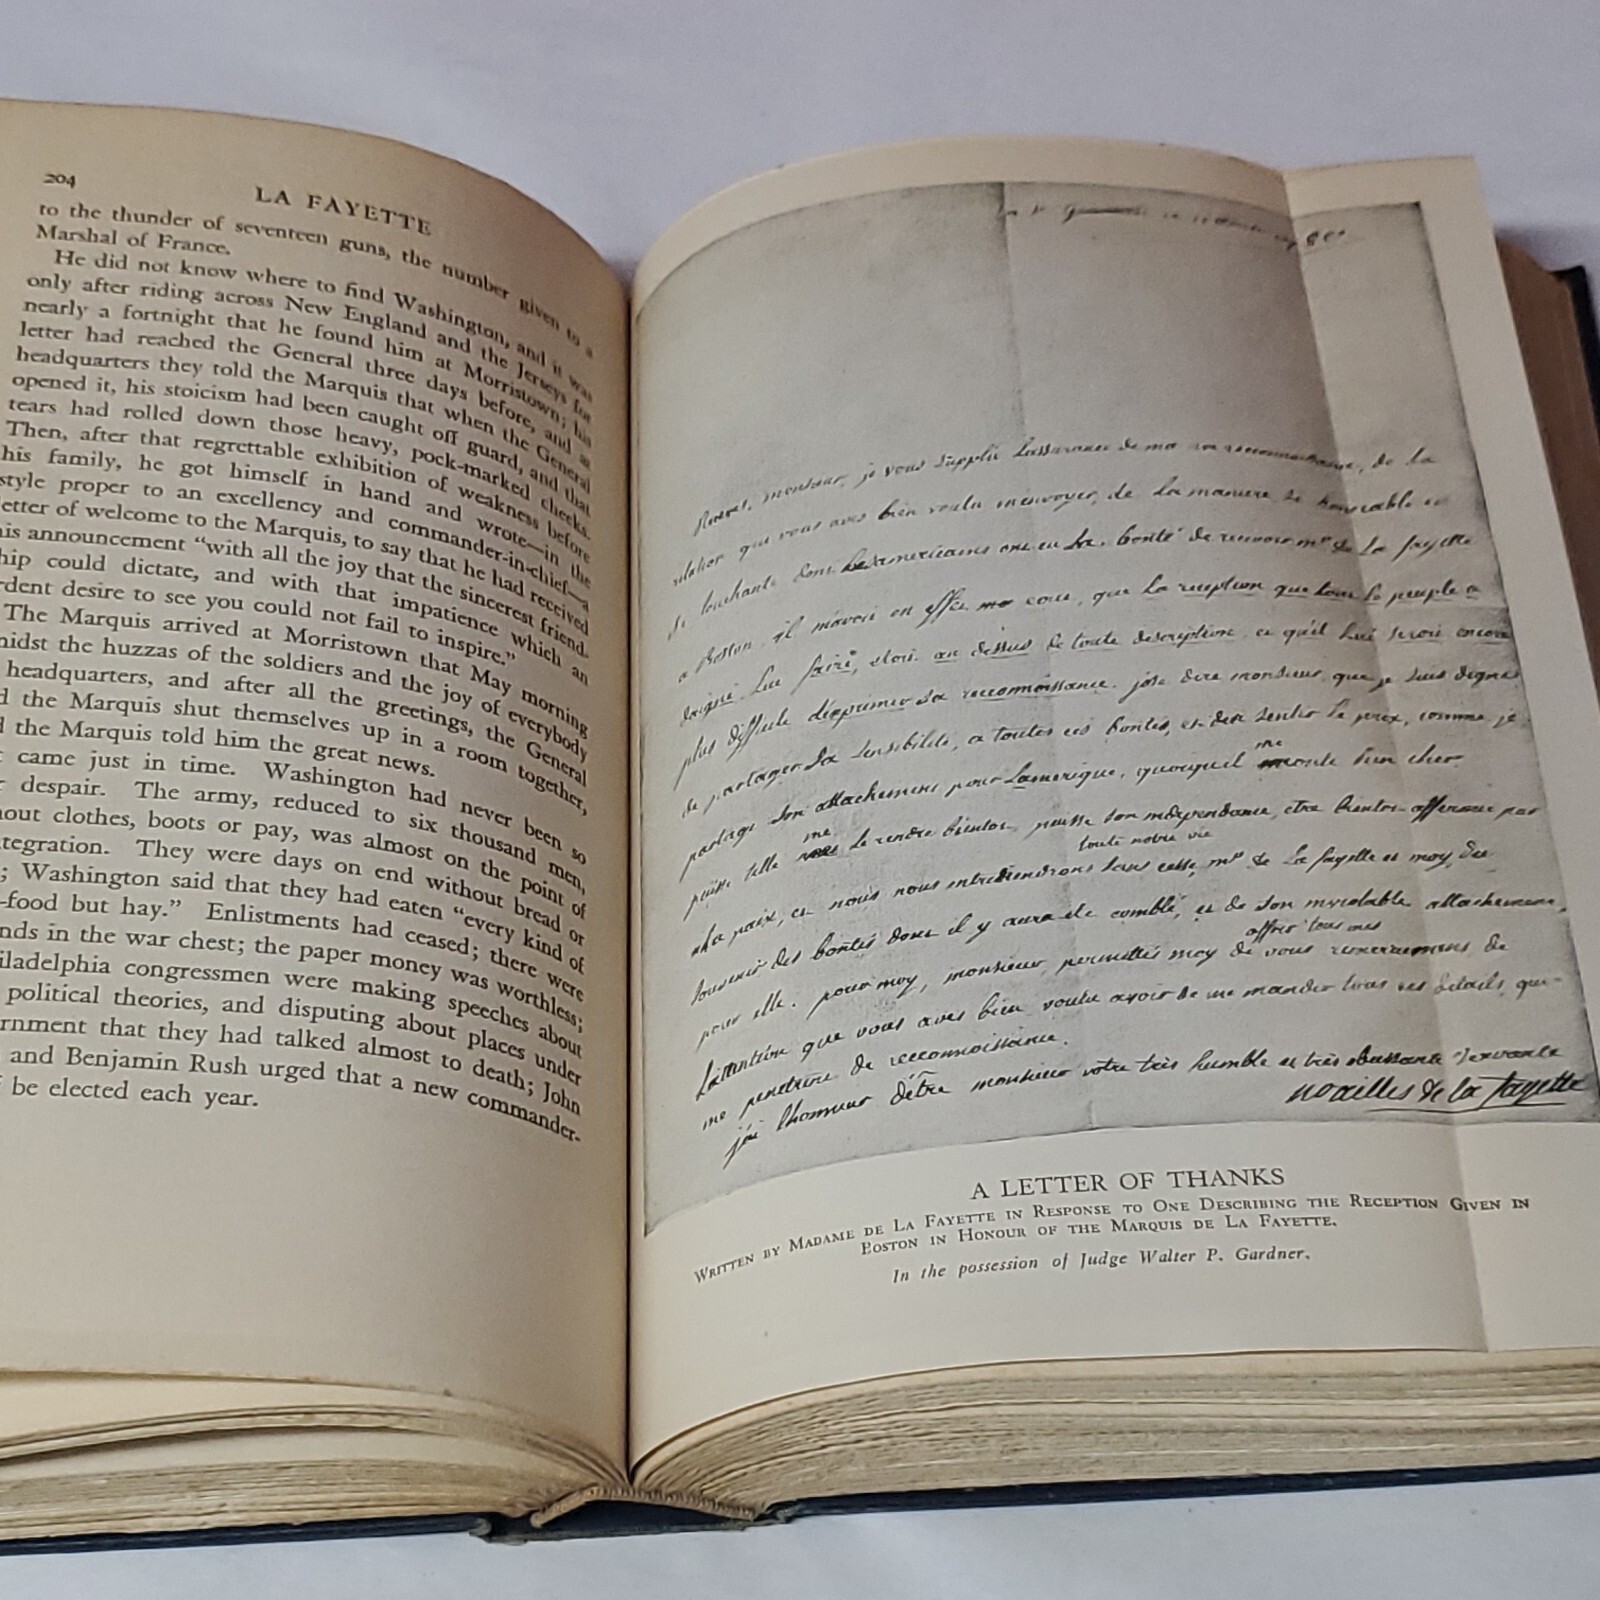 204
LA FAYETTE
to the thunder of seventeen guns, the number given to a
Marshal of France.
He did not know where to find Washington, and it was
only after riding across New England and the Jerseys for
nearly a fortnight that he found him at Morristown; his
letter had reached the General three days before, and at
headquarters they told the Marquis that when the General
opened it, his stoicism had been caught off guard, and that
tears had rolled down those heavy, pock-marked cheeks.
Then, after that regrettable exhibition of weakness before
his family, he got himself in hand and wrote—in the
style proper to an excellency and commander-in-chief—a
etter of welcome to the Marquis, to say that he had received
is announcement "with all the joy that the sincerest friend-
hip could dictate, and with that impatience which an
rdent desire to see you could not fail to inspire."
The Marquis arrived at Morristown that May morning
midst the huzzas of the soldiers and the joy of everybody
headquarters, and after all the greetings, the General
d the Marquis shut themselves up in a room together,
d the Marquis told him the great news.
came just in time. Washington had never been so
r despair. The army, reduced to six thousand men,
hout clothes, boots or pay, was almost on the point of
ntegration. They were days on end without bread or
; Washington said that they had eaten "every kind of
-food but hay." Enlistments had ceased; there were
nds in the war chest; the paper money was worthless;
iladelphia congressmen were making speeches about
political theories, and disputing about places under
rnment that they had talked almost to death; John
and Benjamin Rush urged that a new commander-
be elected each year.
monsieur, je vous supplie de ma de la
relation que vous avés bien voulu m'envoyer, de la maniere
touchante dont les americains ont eu la bonté de recevoir mr de la fayette
a Boston. il m'avoit en effet que la reception que tout le peuple a
daigné lui faire, etoit au dessus de toute description, et qu'il lui seroit encore
plus difficile d'exprimer sa reconnoissance. j'ose dire monsieur, que je suis digne
de partager sa sensibilité, a toutes ces bontés, et d'en sentir le prix, comme je
partage son attachement pour Lamerique, quoiquil me coute bien cher
puisse telle me le rendre bientot, puisse son independance, etre bientot affermie par
toute notre vie
la paix, et nous nous entretiendrons sans cesse, mr de la fayette et moy, du
souvenir des bontés dont il y aura eté comblé, et de son inviolable attachement
offrir tous mes
pour elle. pour moy, monsieur, permettés moy de vous de
Lattention que vous avés bien voulu avoir de me mander tous ces details, qui
me penetrent de reconnoissance.
j'ai l'honneur d'être monsieur votre très humble et très obeissante servante
noailles de la fayette
A LETTER OF THANKS
WRITTEN BY MADAME DE LA FAYETTE IN RESPONSE TO ONE DESCRIBING THE RECEPTION GIVEN IN
BOSTON IN HONOUR OF THE MARQUIS DE LA FAYETTE.
In the possession of Judge Walter P. Gardner.